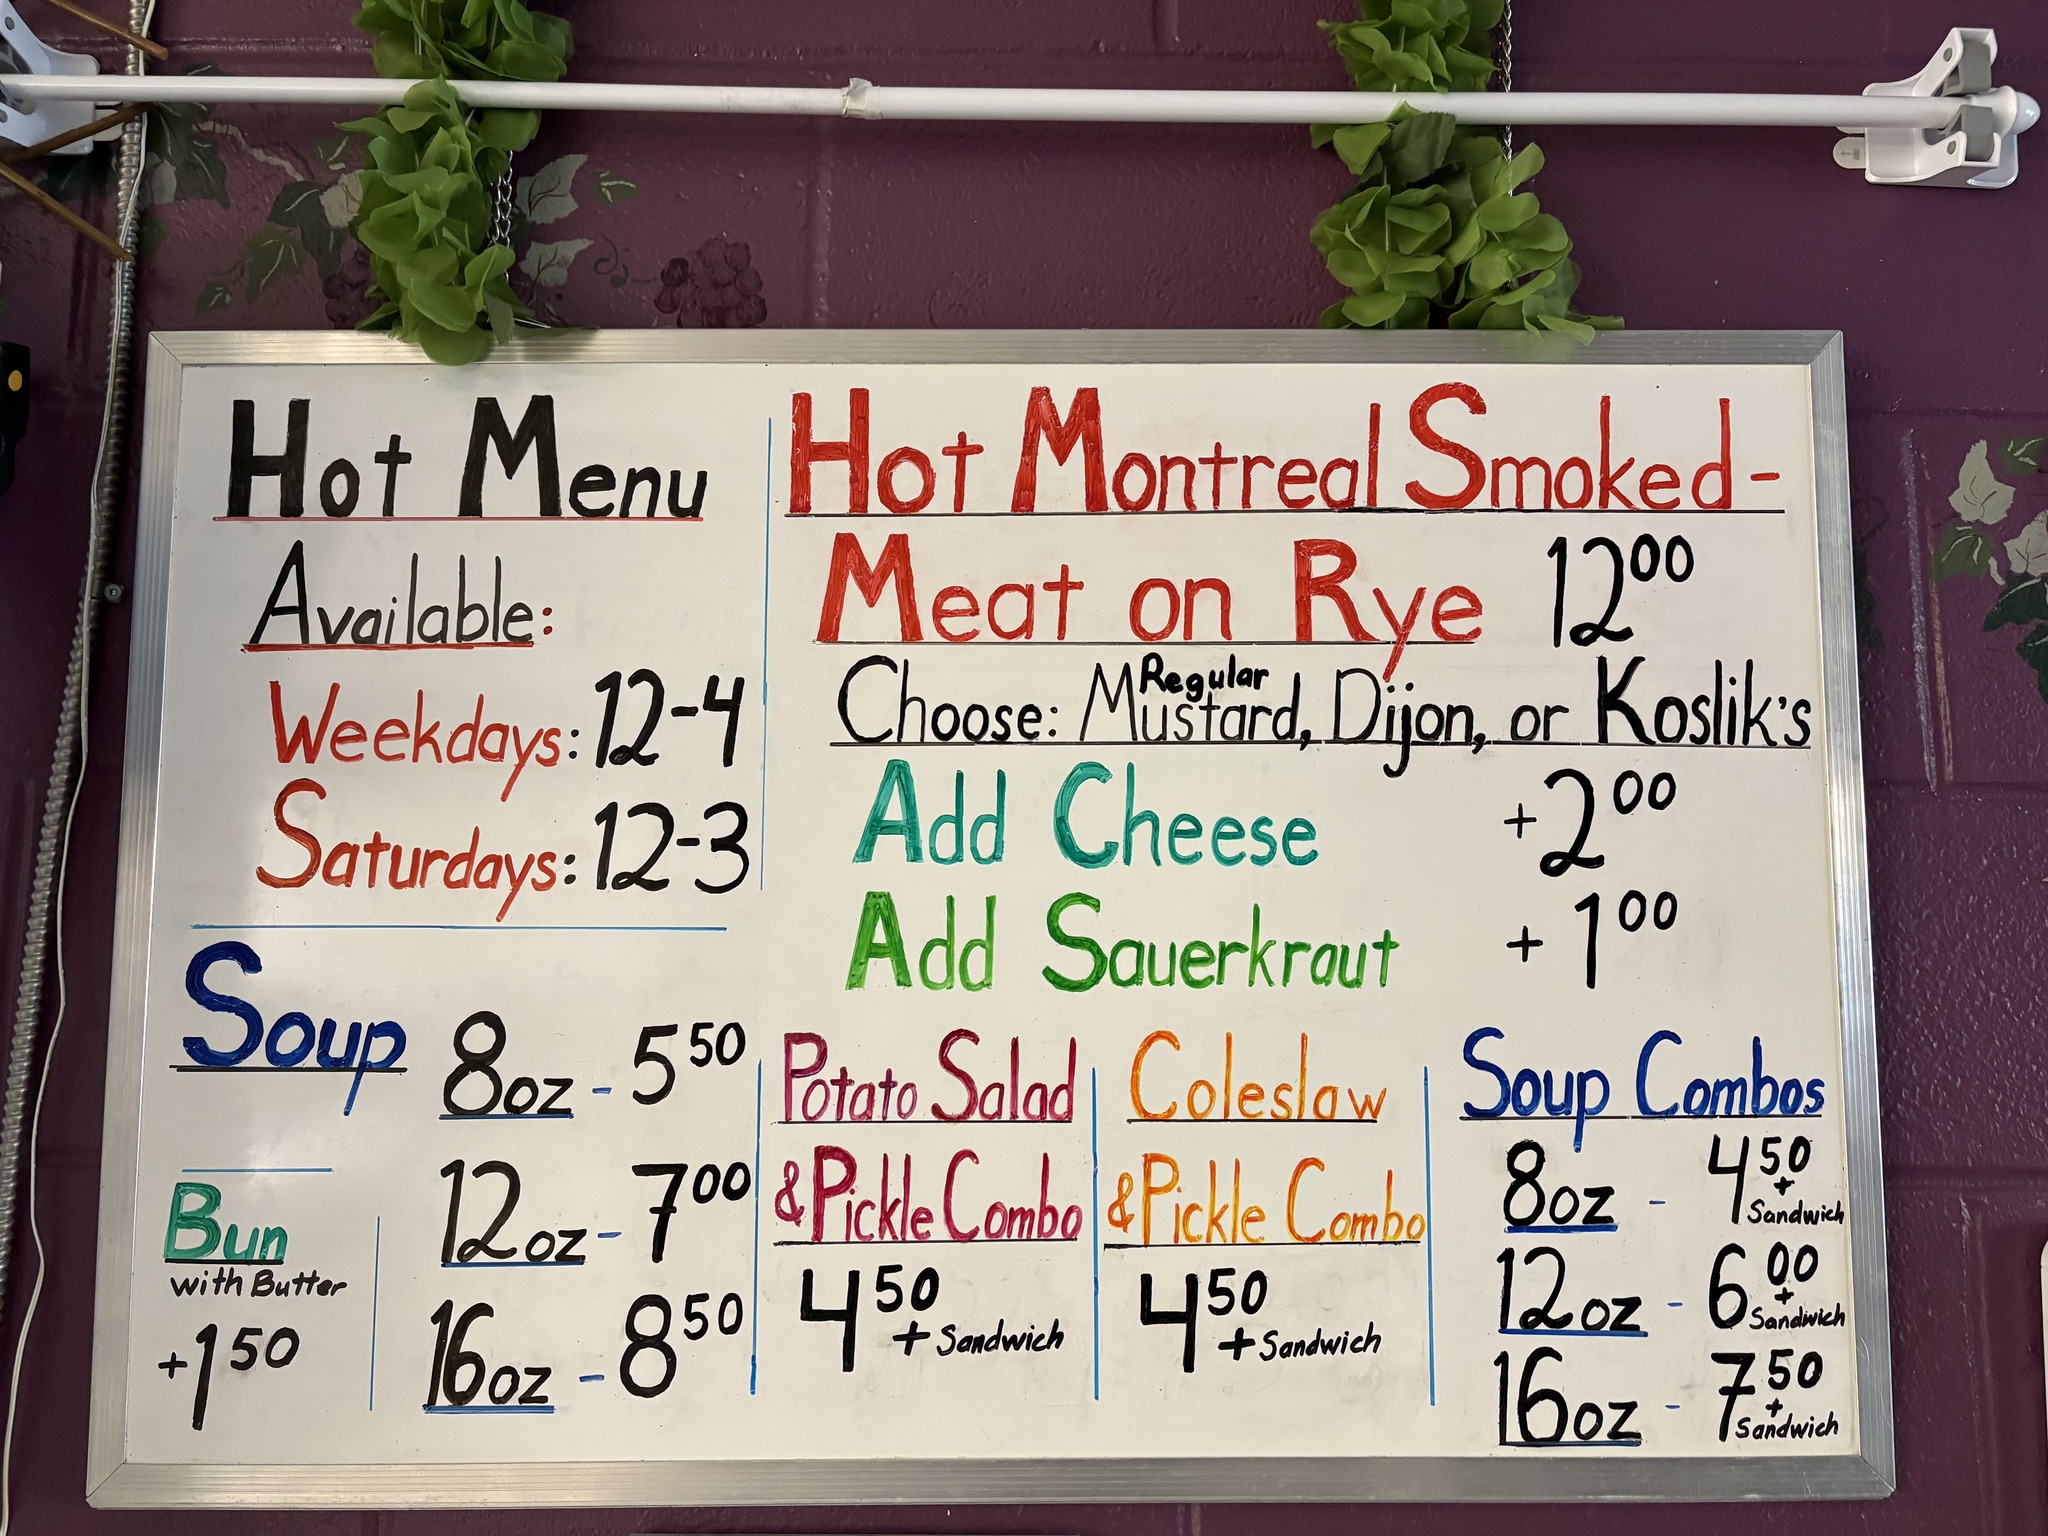 Hot Menu
Available:
Weekdays: 12-4
Saturdays: 12-3
Hot Montreal Smoked-
Meat on Rye 12⁰⁰
Regular
Choose: Mustard, Dijon, or Koslik's
Add Cheese +2⁰⁰
Add Sauerkraut +1⁰⁰
Soup
8oz - 5⁵⁰
12oz - 7⁰⁰
16oz - 8⁵⁰
Bun
with Butter
+1⁵⁰
Potato Salad
& Pickle Combo
4⁵⁰
+ Sandwich
Coleslaw
& Pickle Combo
4⁵⁰
+ Sandwich
Soup Combos
8oz - 4⁵⁰
+
Sandwich
12oz - 6⁰⁰
+
Sandwich
16oz - 7⁵⁰
+
Sandwich